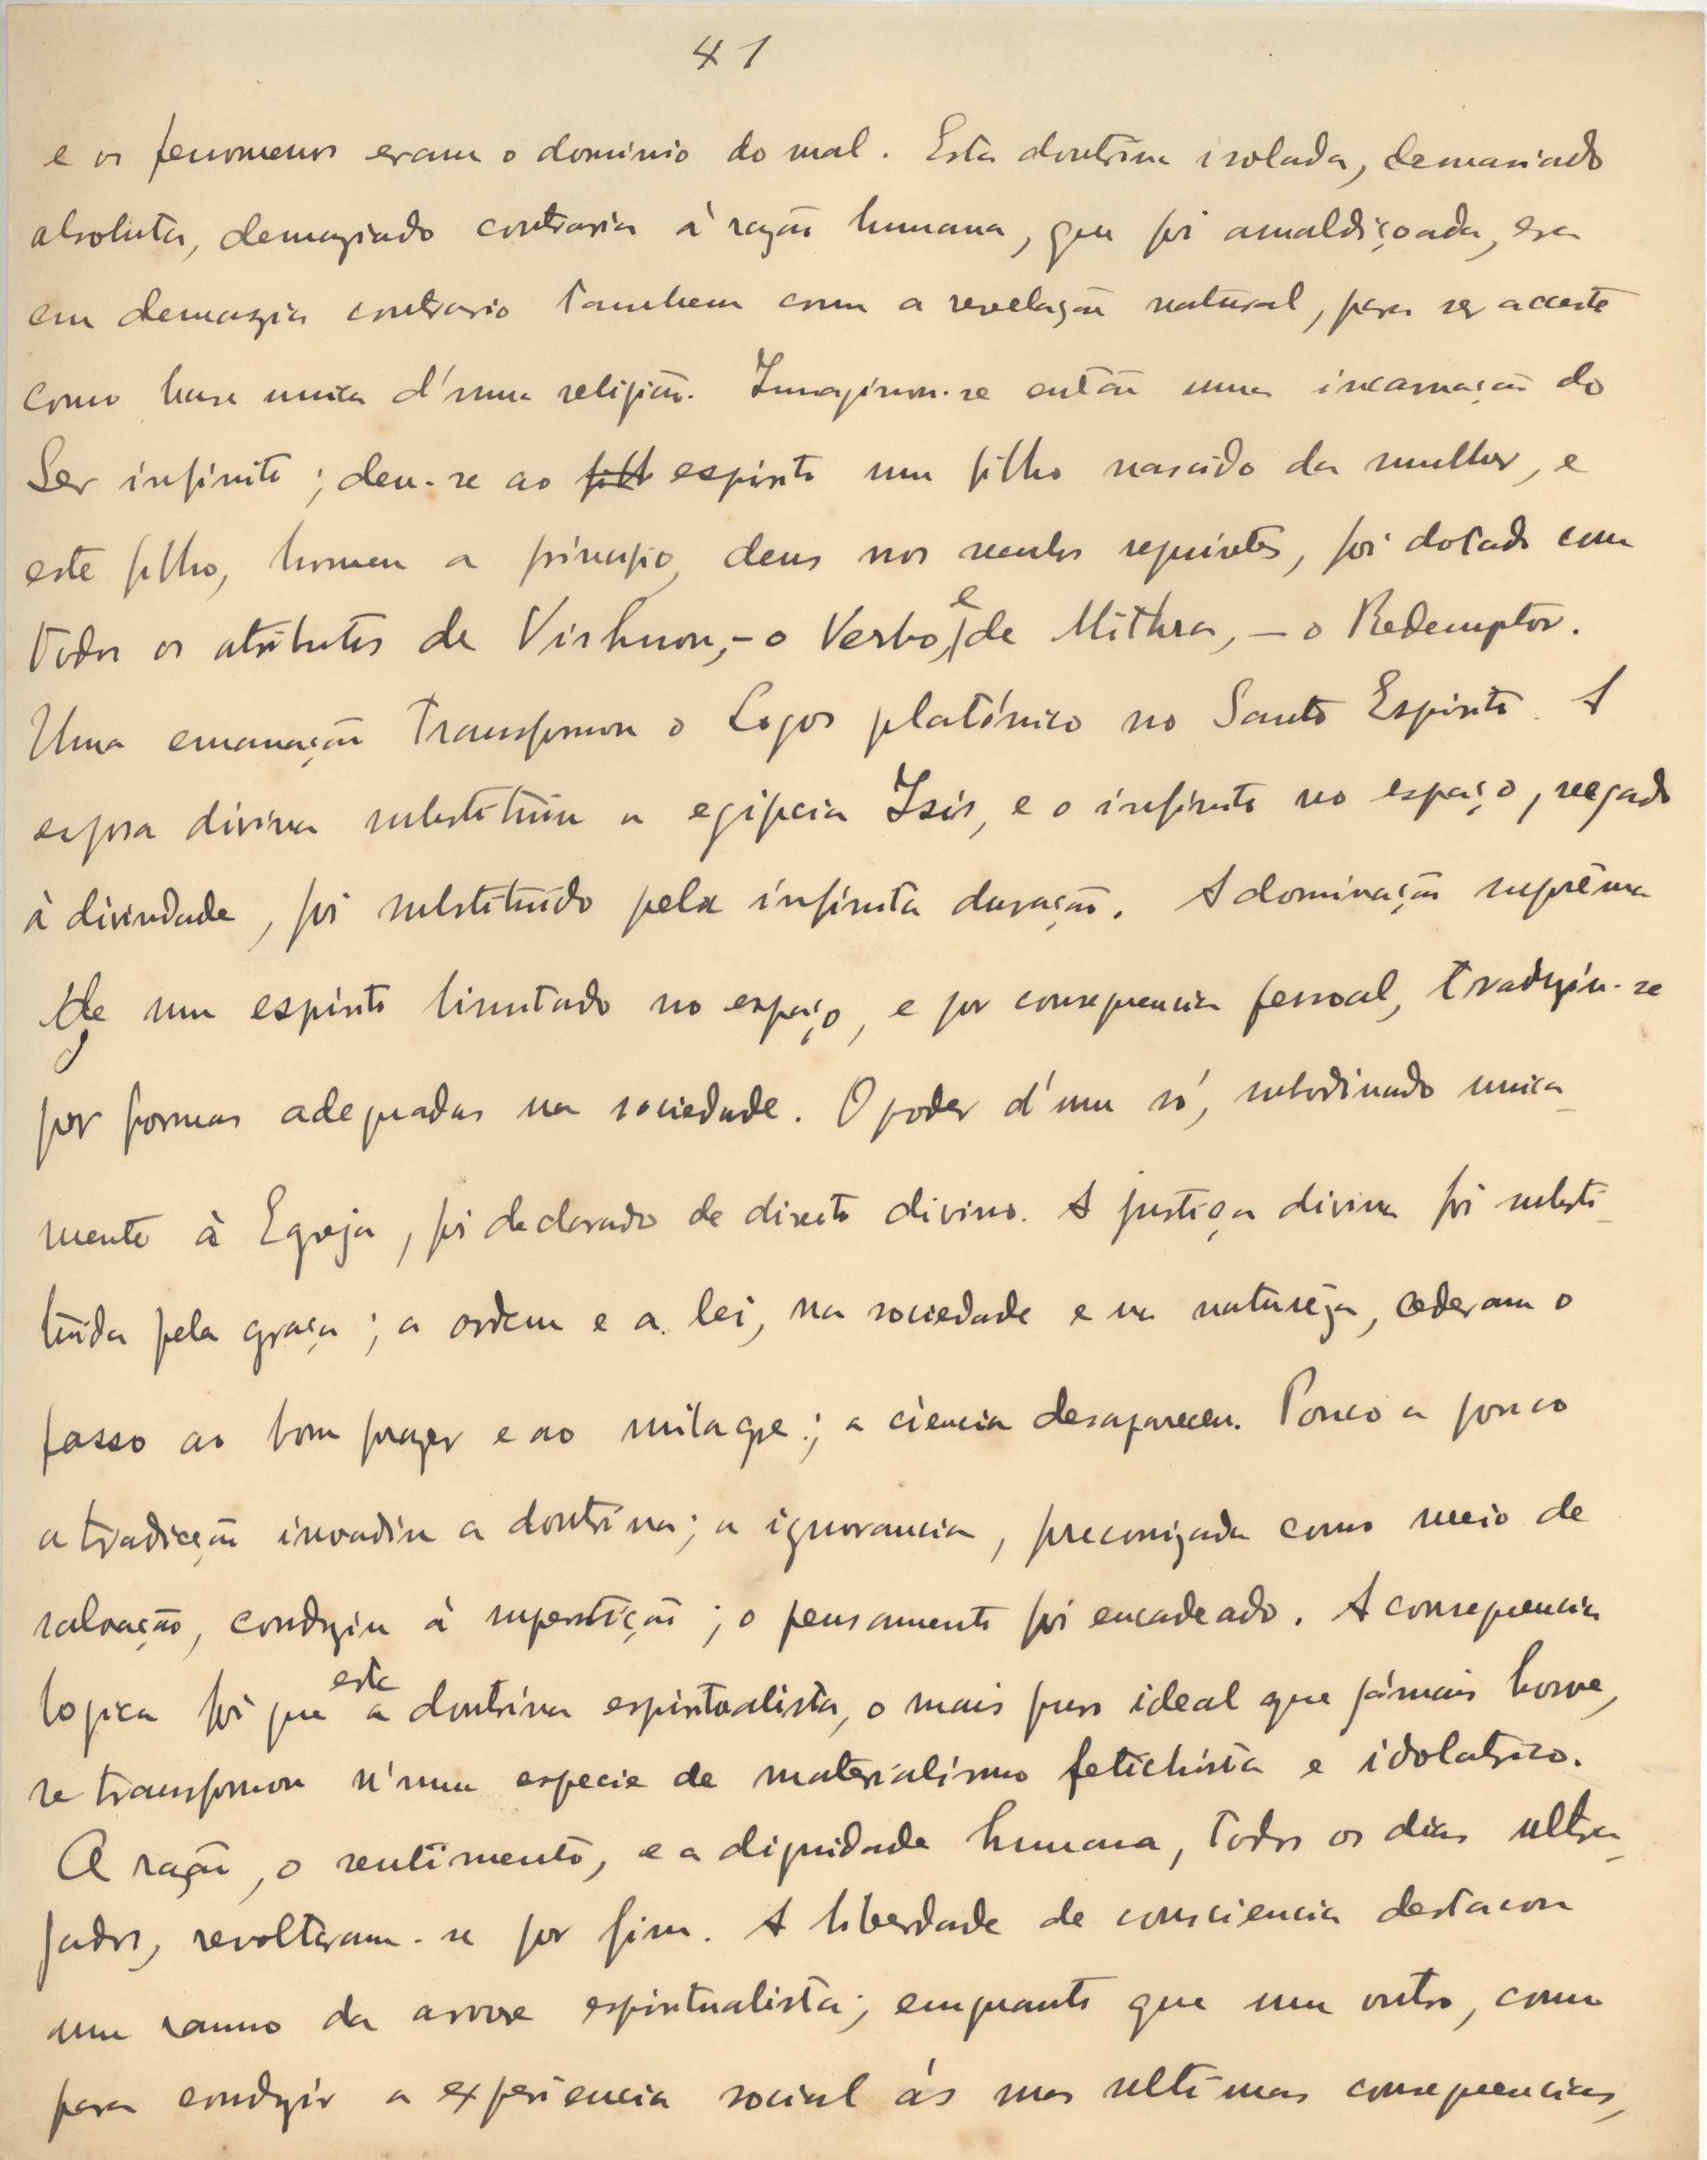 41
e os fenomenos eram o dominio do mal. Esta doutrina isolada, demasiado
absoluta, demaziado contraria á razão humana, que foi amaldiçoada, era
em demazia contrario tambem com a revelação natural, para ser acceite
como base unica d'uma religião. Imaginou-se então uma incarnação do
Ser infinito; deu-se ao filh espirito um filho nascido da mulher, e
este filho, homem a principio, deus nos seculos seguintes, foi dotado com
todos os atributos de Vishnou, - o Verbo, e de Mithra, - o Redemptor.
Uma emanação transformou o Logos platónico no Santo Espirito. A
esposa divina substituiu a egipcia Isis, e o infinito no espaço, negado
à divindade, foi substituido pela infinita duração. A dominação suprêma
de um espirito limitado no espaço, e por consequencia pessoal, traduziu-se
por formas adequadas na sociedade. O poder d'um só, subordinado unica-
mente à Egreja, foi declarado de direito divino. A justiça divina foi substi-
tuida pela graça; a ordem e a lei, na sociedade e na natureza, cederam o
passo ao bom prazer e ao milagre; a ciencia desapareceu. Pouco a pouco
a tradicção invadiu a doutrina; a ignorancia, preconizada como meio de
salvação, conduziu à superstição; o pensamento foi encadeado. A consequencia
logica foi que esta a doutrina espiritualista, o mais puro ideal que jámais houve,
se transformou n'uma especie de materialismo fetichista e idolatrico.
A razão, o sentimento, e a dignidade humana, todos os dias ultra-
jados, revoltaram-se por fim. A liberdade de consciencia destacou
um ramo da arvore espiritualista; emquanto que um outro, como
para conduzir a experiencia social ás suas ultimas consequencias,